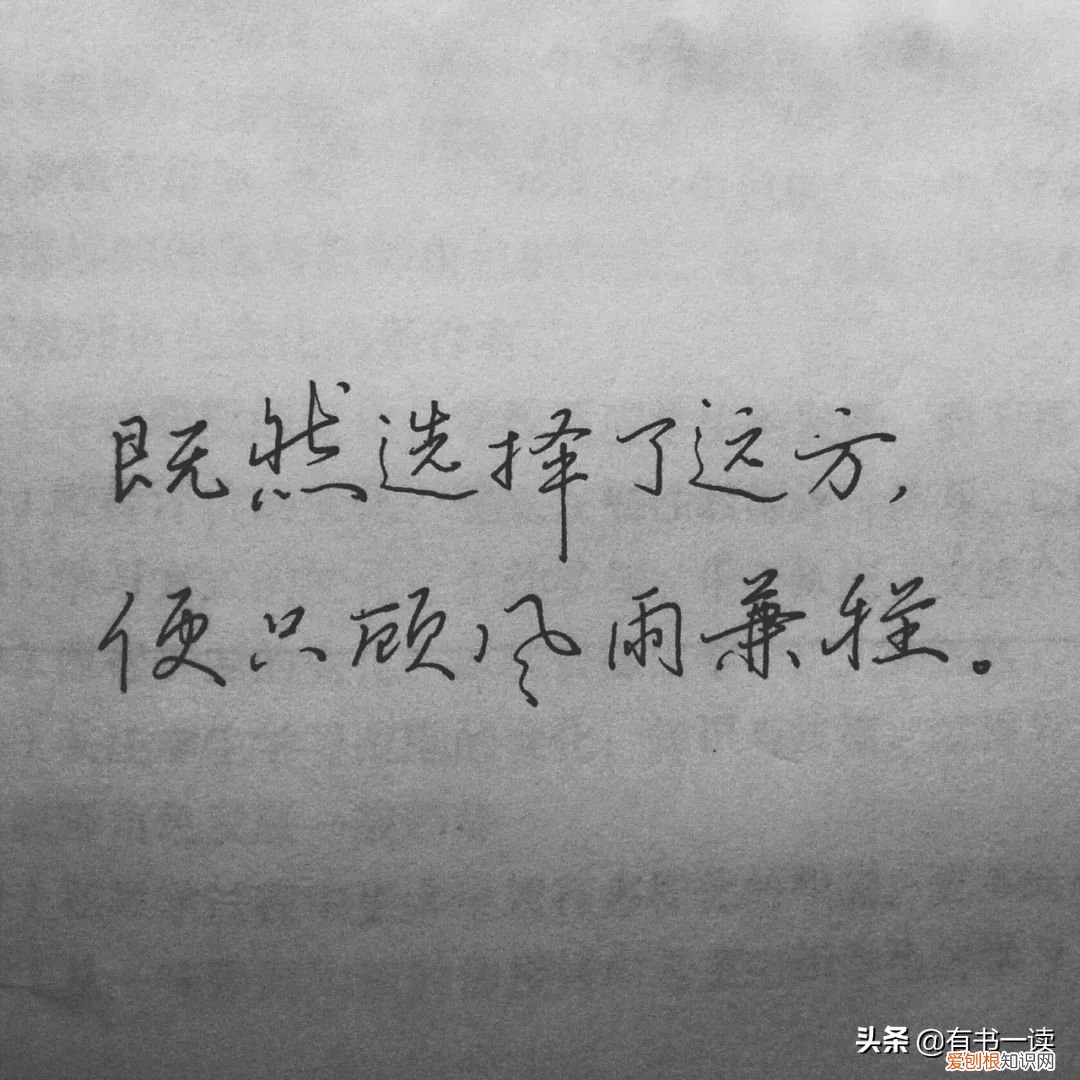 既然选择了远方,
便只顾风雨兼程。
头条 @有书一读
爱刨根知识网